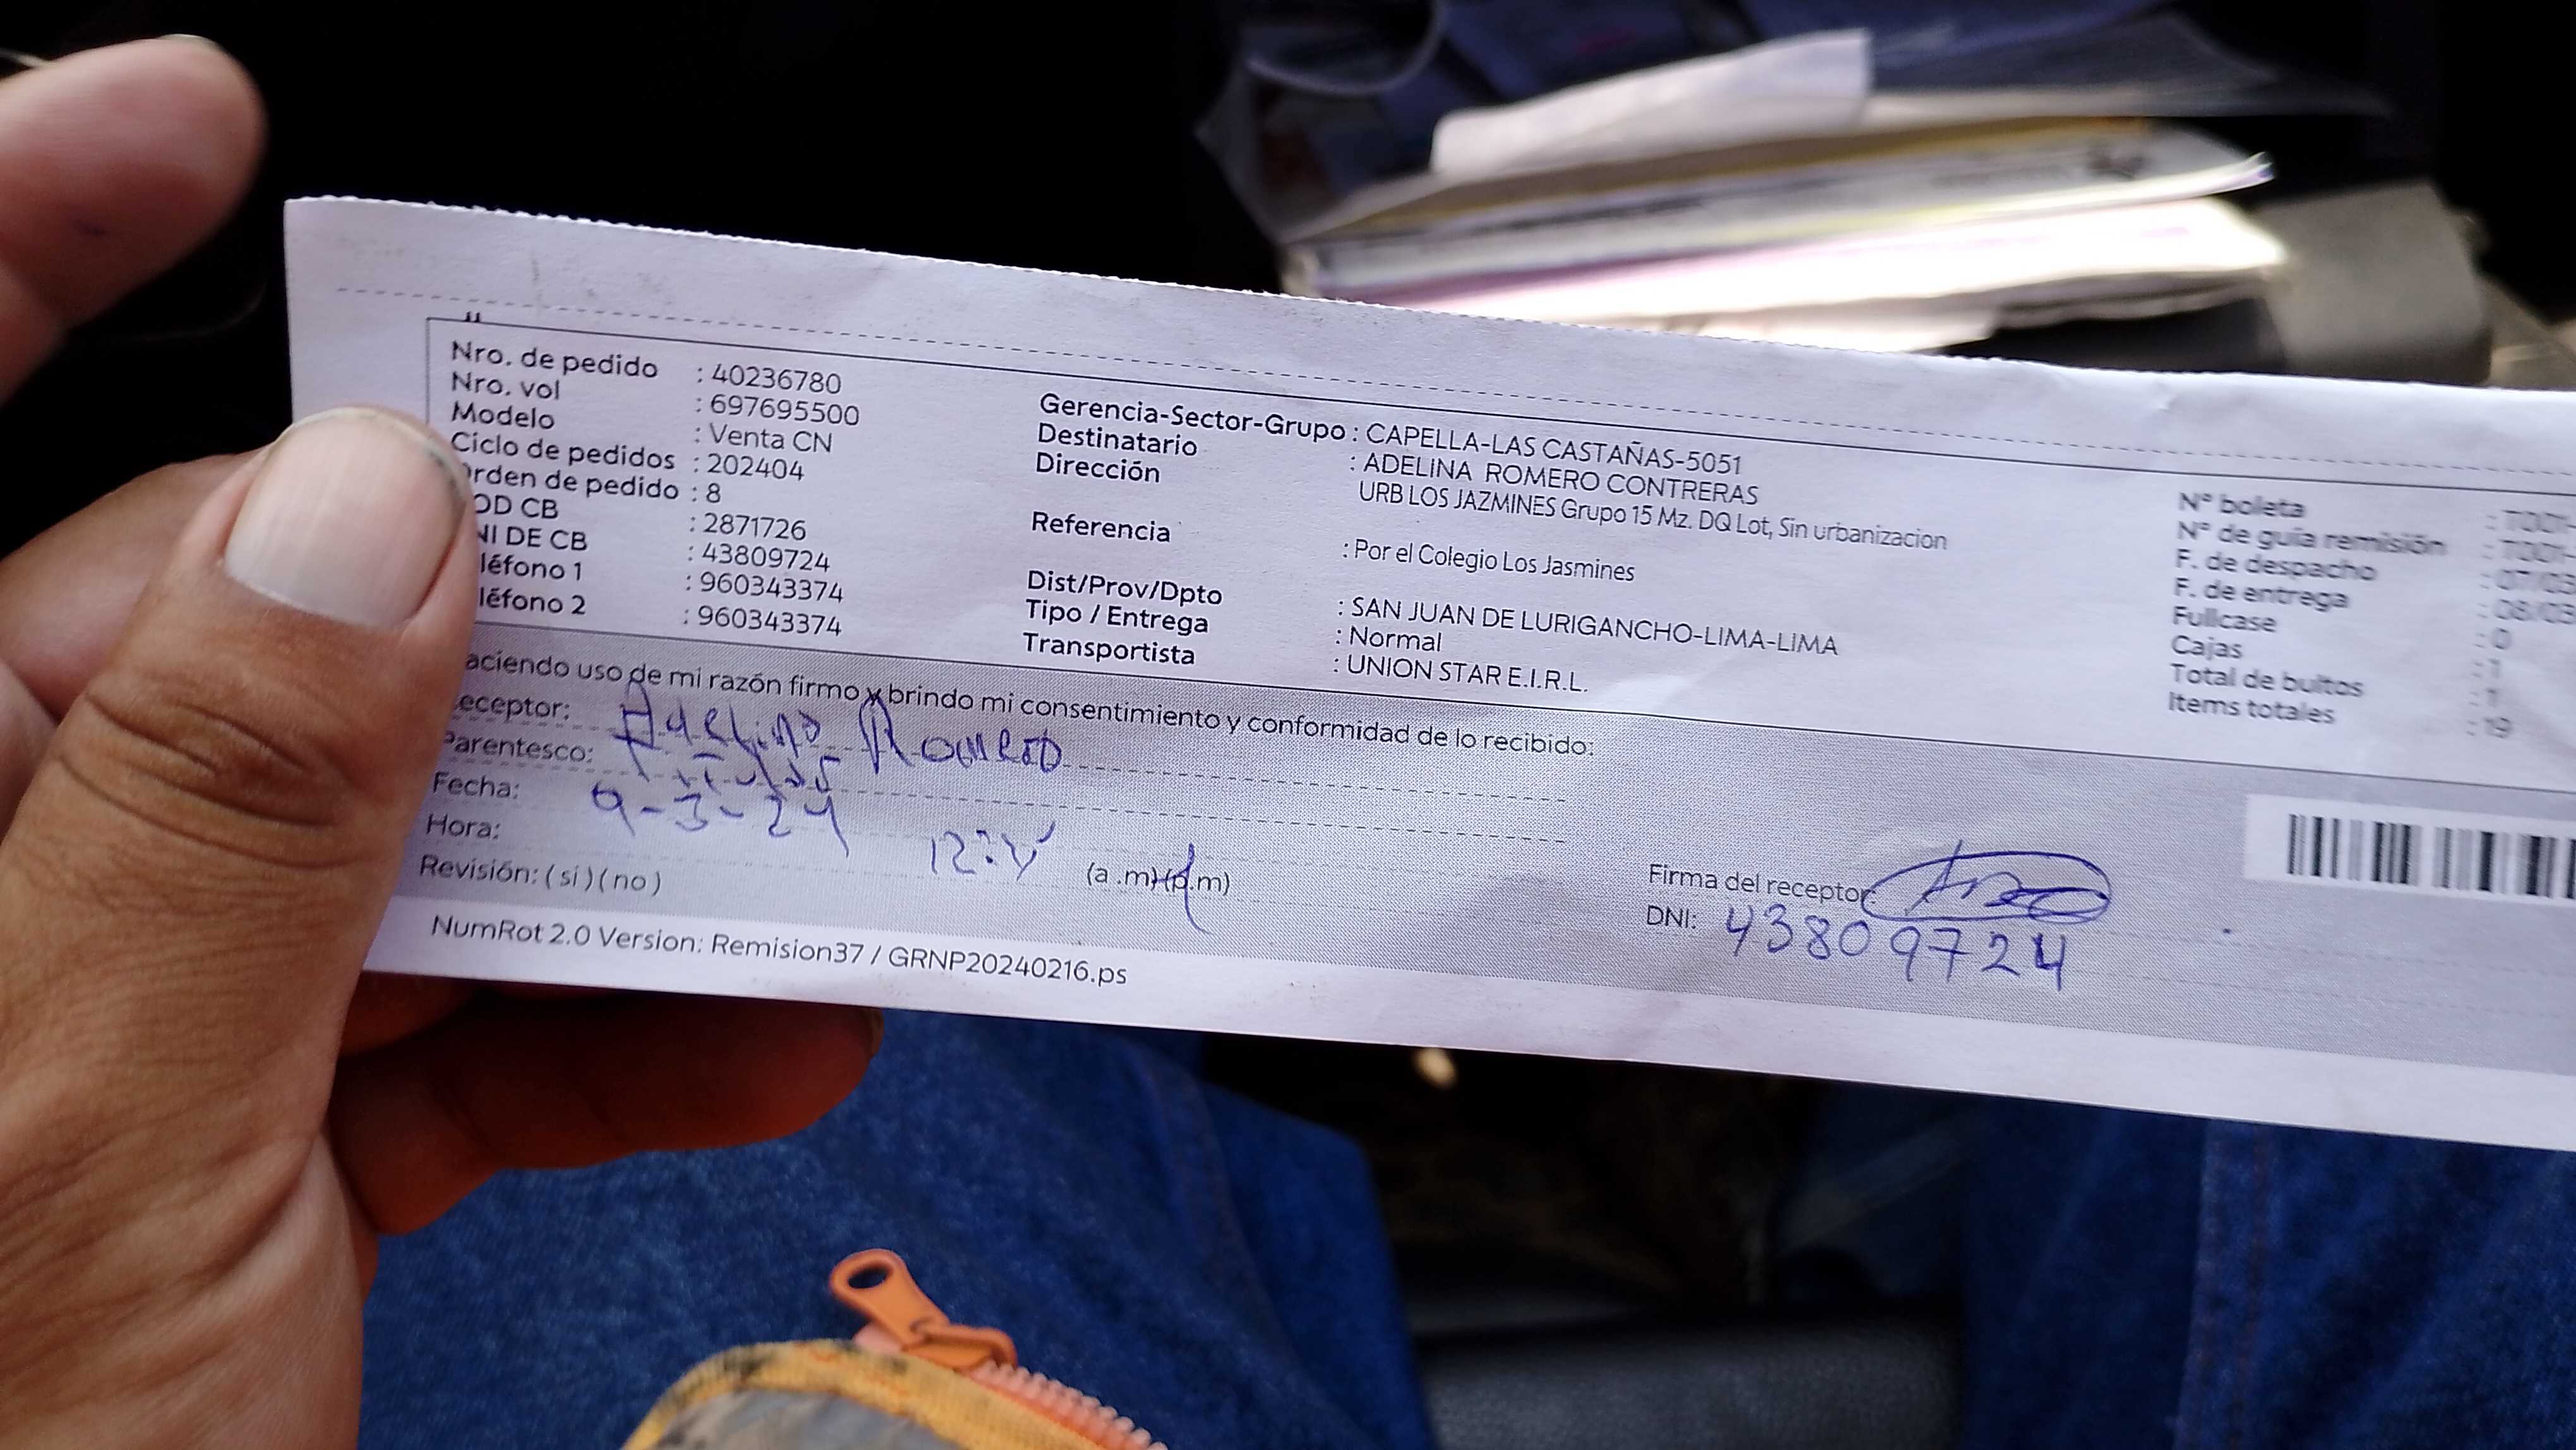 Nro. de pedido : 40236780
Nro. vol : 697695500
Modelo : Venta CN
Ciclo de pedidos : 202404
rden de pedido : 8
OD CB : 2871726
NI DE CB : 43809724
léfono 1 : 960343374
léfono 2 : 960343374
Gerencia-Sector-Grupo : CAPELLA-LAS CASTAÑAS-5051
Destinatario : ADELINA ROMERO CONTRERAS
Dirección URB LOS JAZMINES Grupo 15 Mz. DQ Lot, Sin urbanizacion
Referencia : Por el Colegio Los Jasmines
Dist/Prov/Dpto : SAN JUAN DE LURIGANCHO-LIMA-LIMA
Tipo / Entrega : Normal
Transportista : UNION STAR E.I.R.L.
N° boleta : T001
N° de guía remisión : T001
F. de despacho : 07/03
F. de entrega : 08/03
Fullcase : 0
Cajas : 1
Total de bultos : 1
Items totales : 19
aciendo uso de mi razón firmo y brindo mi consentimiento y conformidad de lo recibido:
eceptor: Adelina Romero
Parentesco: Titular
Fecha: 9-3-24
Hora: (a.m)(p.m)
Revisión: (si) (no)
Firma del receptor:
DNI: 43809724
NumRot 2.0 Version: Remision37 / GRNP20240216.ps